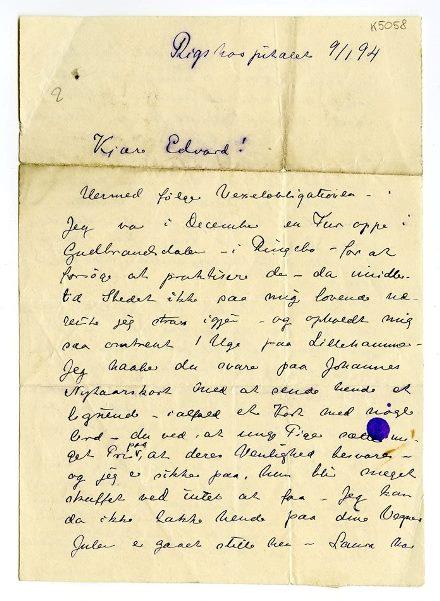 K5058
Rigshospitalet 9/1 94
2
Kjære Edvard!
Hermed følge Vexelobligationen –
Jeg var i December en Tur oppe i
Gudbrandsdalen – i Ringebo – for at
forsøge at praktisere der – da imidler
tid Stedet ikke saa mig lovende
reiste jeg strax igjen – og opholdt mig
saa omtrent 1 Uge paa Lillehammer –
Jeg haaber du svarer paa Johannes
Nytaarskort med at sende hende et
lignende – ialfald et Kort med nogle
Ord – du ved, at unge Piger sætter me
get Pris paa, at deres Venlighed besvares –
og jeg er sikker paa, hun blir meget
skuffet ved intet at faa – Jeg kan
da ikke takke hende paa dine Vegne
Julen er gaaet stille hen – Laura har